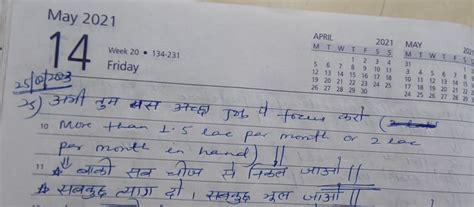 May 2021
14
Week 20 • 134-231
Friday
APRIL 2021
M T W T F S S
1 2 3 4
5 6 7 8 9 10 11
12 13 14 15 16 17 18
19 20 21 22 23 24 25
26 27 28 29 30
MAY
M T W T F
31
25) अभी तुम बस अच्छा job पे focus करो (
10 More than 1.5 lac per month or 2 lac
per month in hand) ||
11 * बाकी सब चीज से निकल जाओ ||
* सबकुछ त्याग दो । सबकुछ भूल जाओ ||